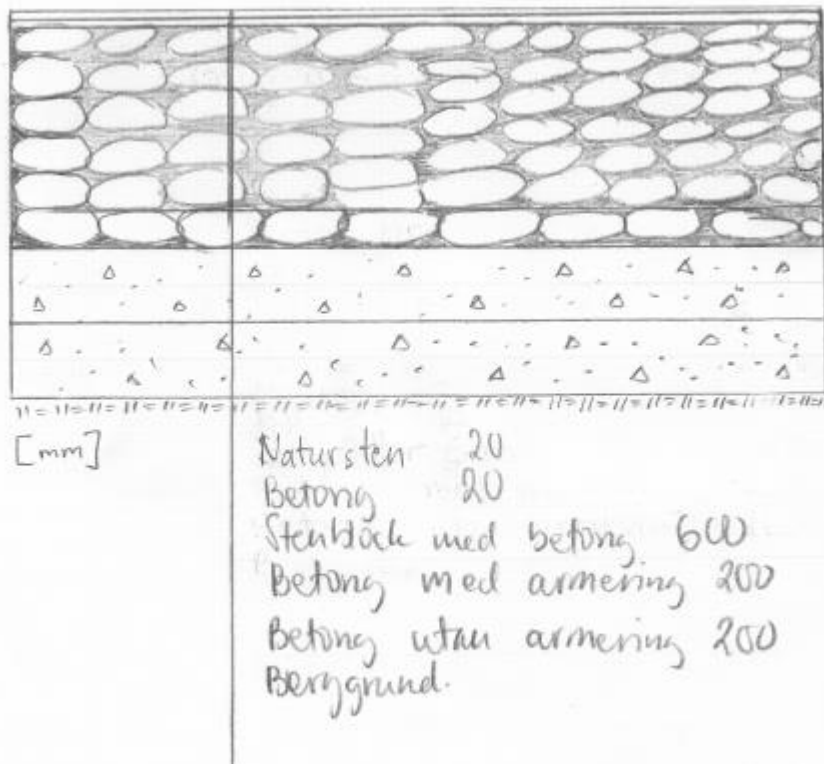 [mm]
Natursten 20
Betong 20
Stenblock med betong 600
Betong med armering 200
Betong utan armering 200
Berggrund.